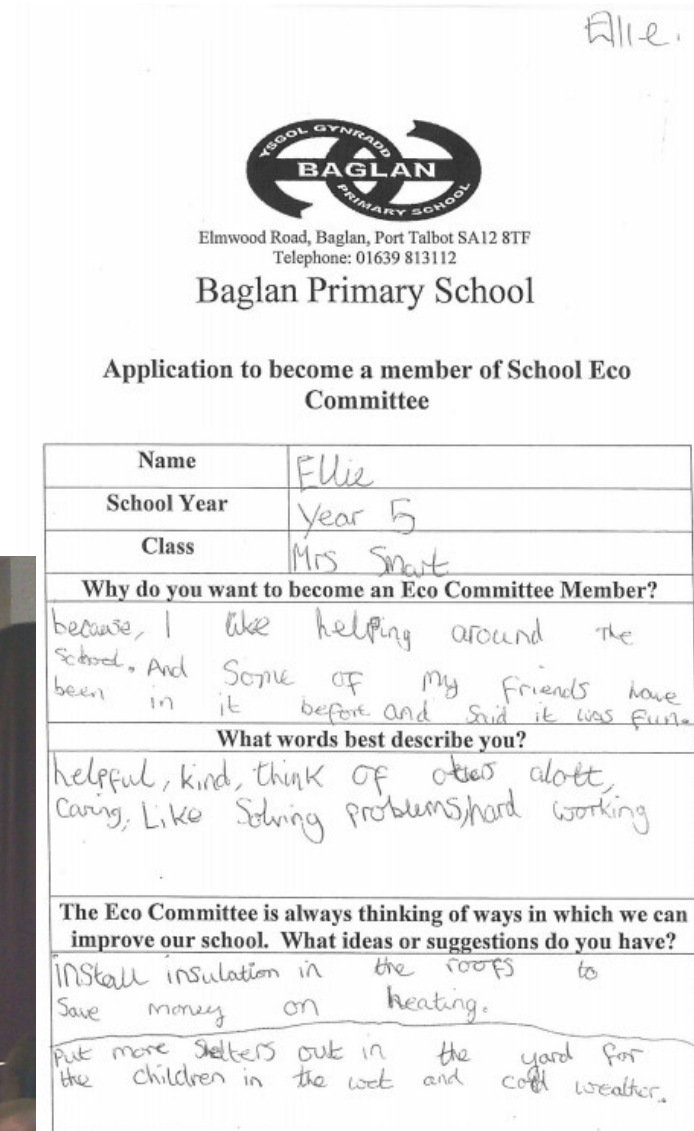 Ellie.
YSGOL GYNRADD
BAGLAN
PRIMARY SCHOOL
Elmwood Road, Baglan, Port Talbot SA12 8TF
Telephone: 01639 813112
Baglan Primary School
Application to become a member of School Eco
Committee
Name Ellie
School Year Year 5
Class Mrs Smart
Why do you want to become an Eco Committee Member?
because, I like helping around the
School. And Some of my friends have
been in it before and Said it was fun.
What words best describe you?
helpful, kind, think of others alott,
Caring, Like Solving problems, hard working
The Eco Committee is always thinking of ways in which we can
improve our school. What ideas or suggestions do you have?
install insulation in the roofs to
Save money on heating.
Put more Shelters out in the yard for
the children in the wet and cold weather.